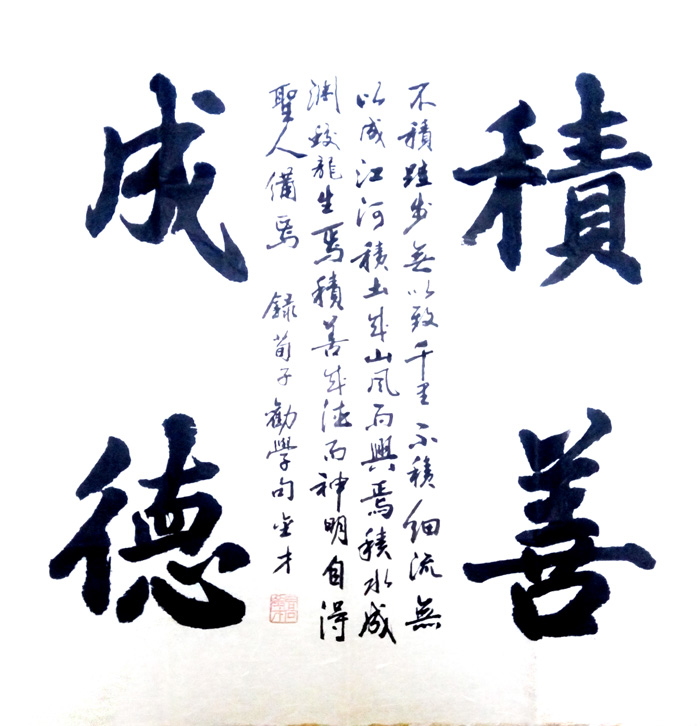 積善
成德
不積跬步無以致千里不積細流無
以成江河積土成山風雨興焉積水成
渊蛟龍生焉積善成德而神明自得
聖人備焉 錄荀子勸學句